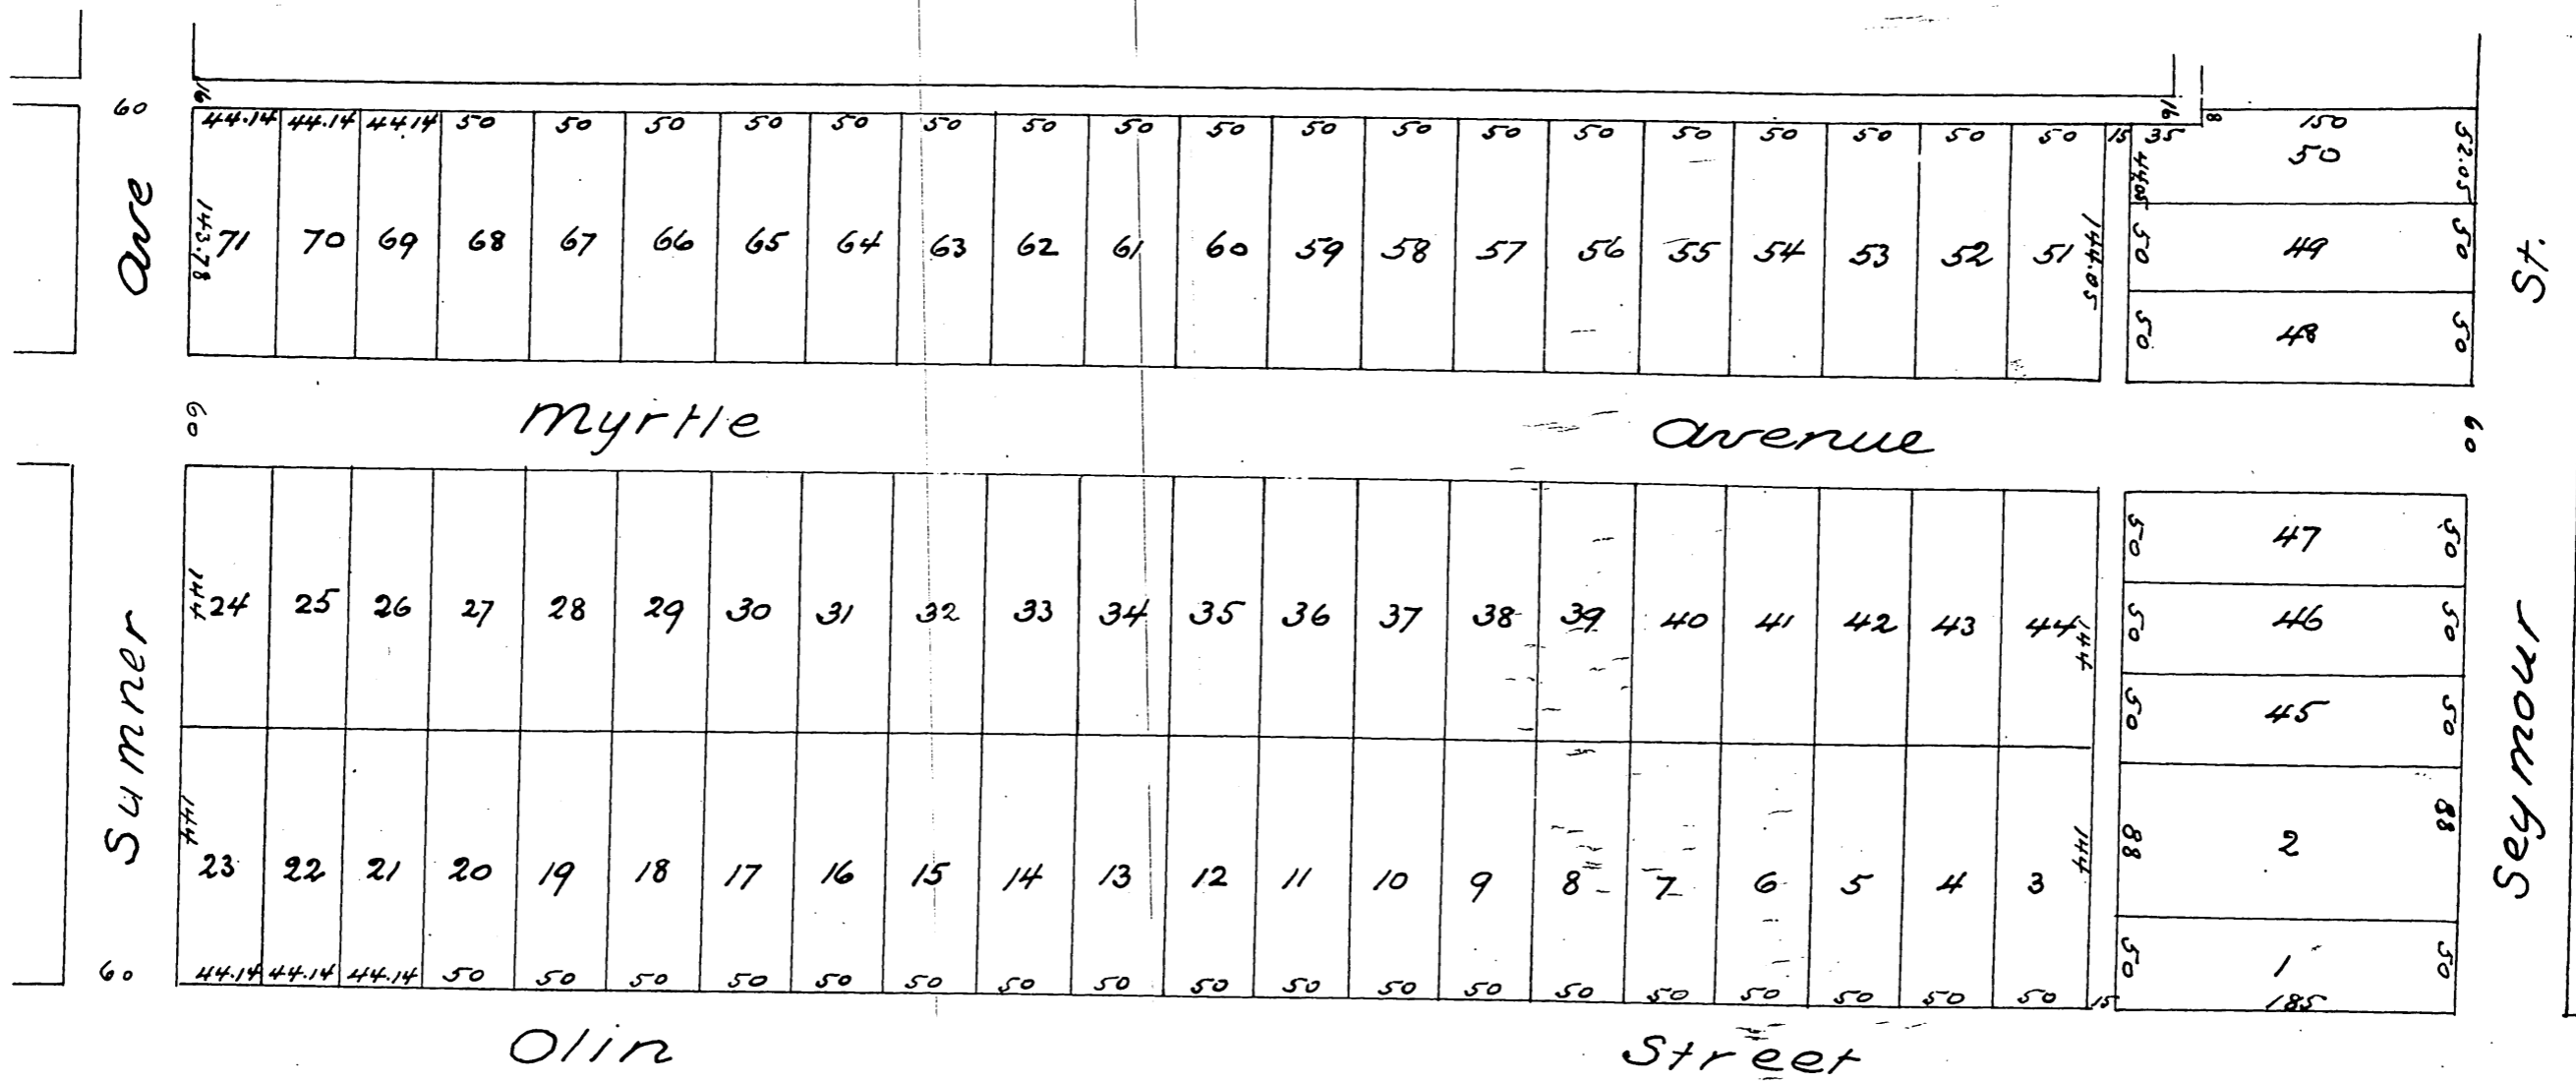 60 16 16 8
44.14 44.14 44.14 50 50 50 50 50 50 50 50 50 50 50 50 50 50 50 50 50 50 15 35 150
44.05 50 52.05
Ave 143.78 71 70 69 68 67 66 65 64 63 62 61 60 59 58 57 56 55 54 53 52 51 144.05 50 49 50 St.
50 48 50
60 Myrtle Avenue 60
50 47 50
144 24 25 26 27 28 29 30 31 32 33 34 35 36 37 38 39 40 41 42 43 44 144 50 46 50
50 45 50
Sumner Seymour
144 23 22 21 20 19 18 17 16 15 14 13 12 11 10 9 8 7 6 5 4 3 144 88 2 88
50 1 50
60 44.14 44.14 44.14 50 50 50 50 50 50 50 50 50 50 50 50 50 50 50 50 50 50 15 185
Olin Street